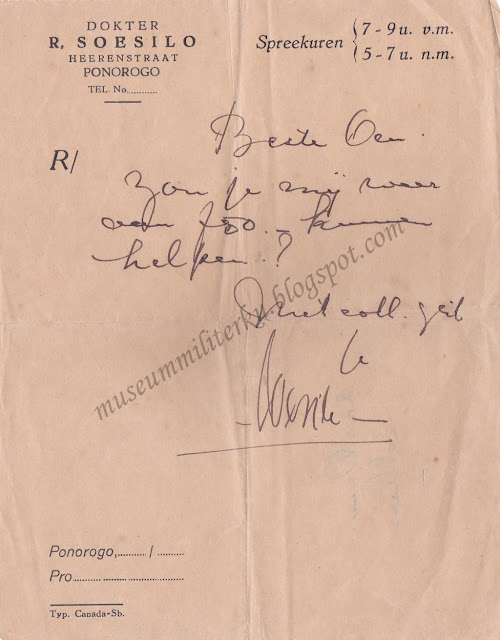 DOKTER
R. SOESILO
HEERENSTRAAT
PONOROGO
TEL. No............
Spreekuren { 7-9 u. v.m.
5-7 u. n.m.
R/
Beste
Zou je mij weer
aan f50.- kunnen
helpen?
Met coll.
Soesilo
museummiliterku.blogspot.com
Ponorogo,........../..........
Pro........................................
Typ. Canada-Sb.